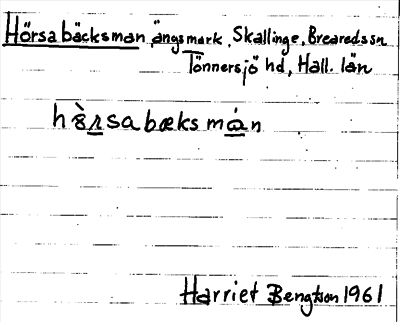 Hörsabäcksman, ängsmark, Skallinge, Brearedssn
Tönnersjö hd, Hall. län
hə̀rsabæksmán
Harriet Bengtson 1961